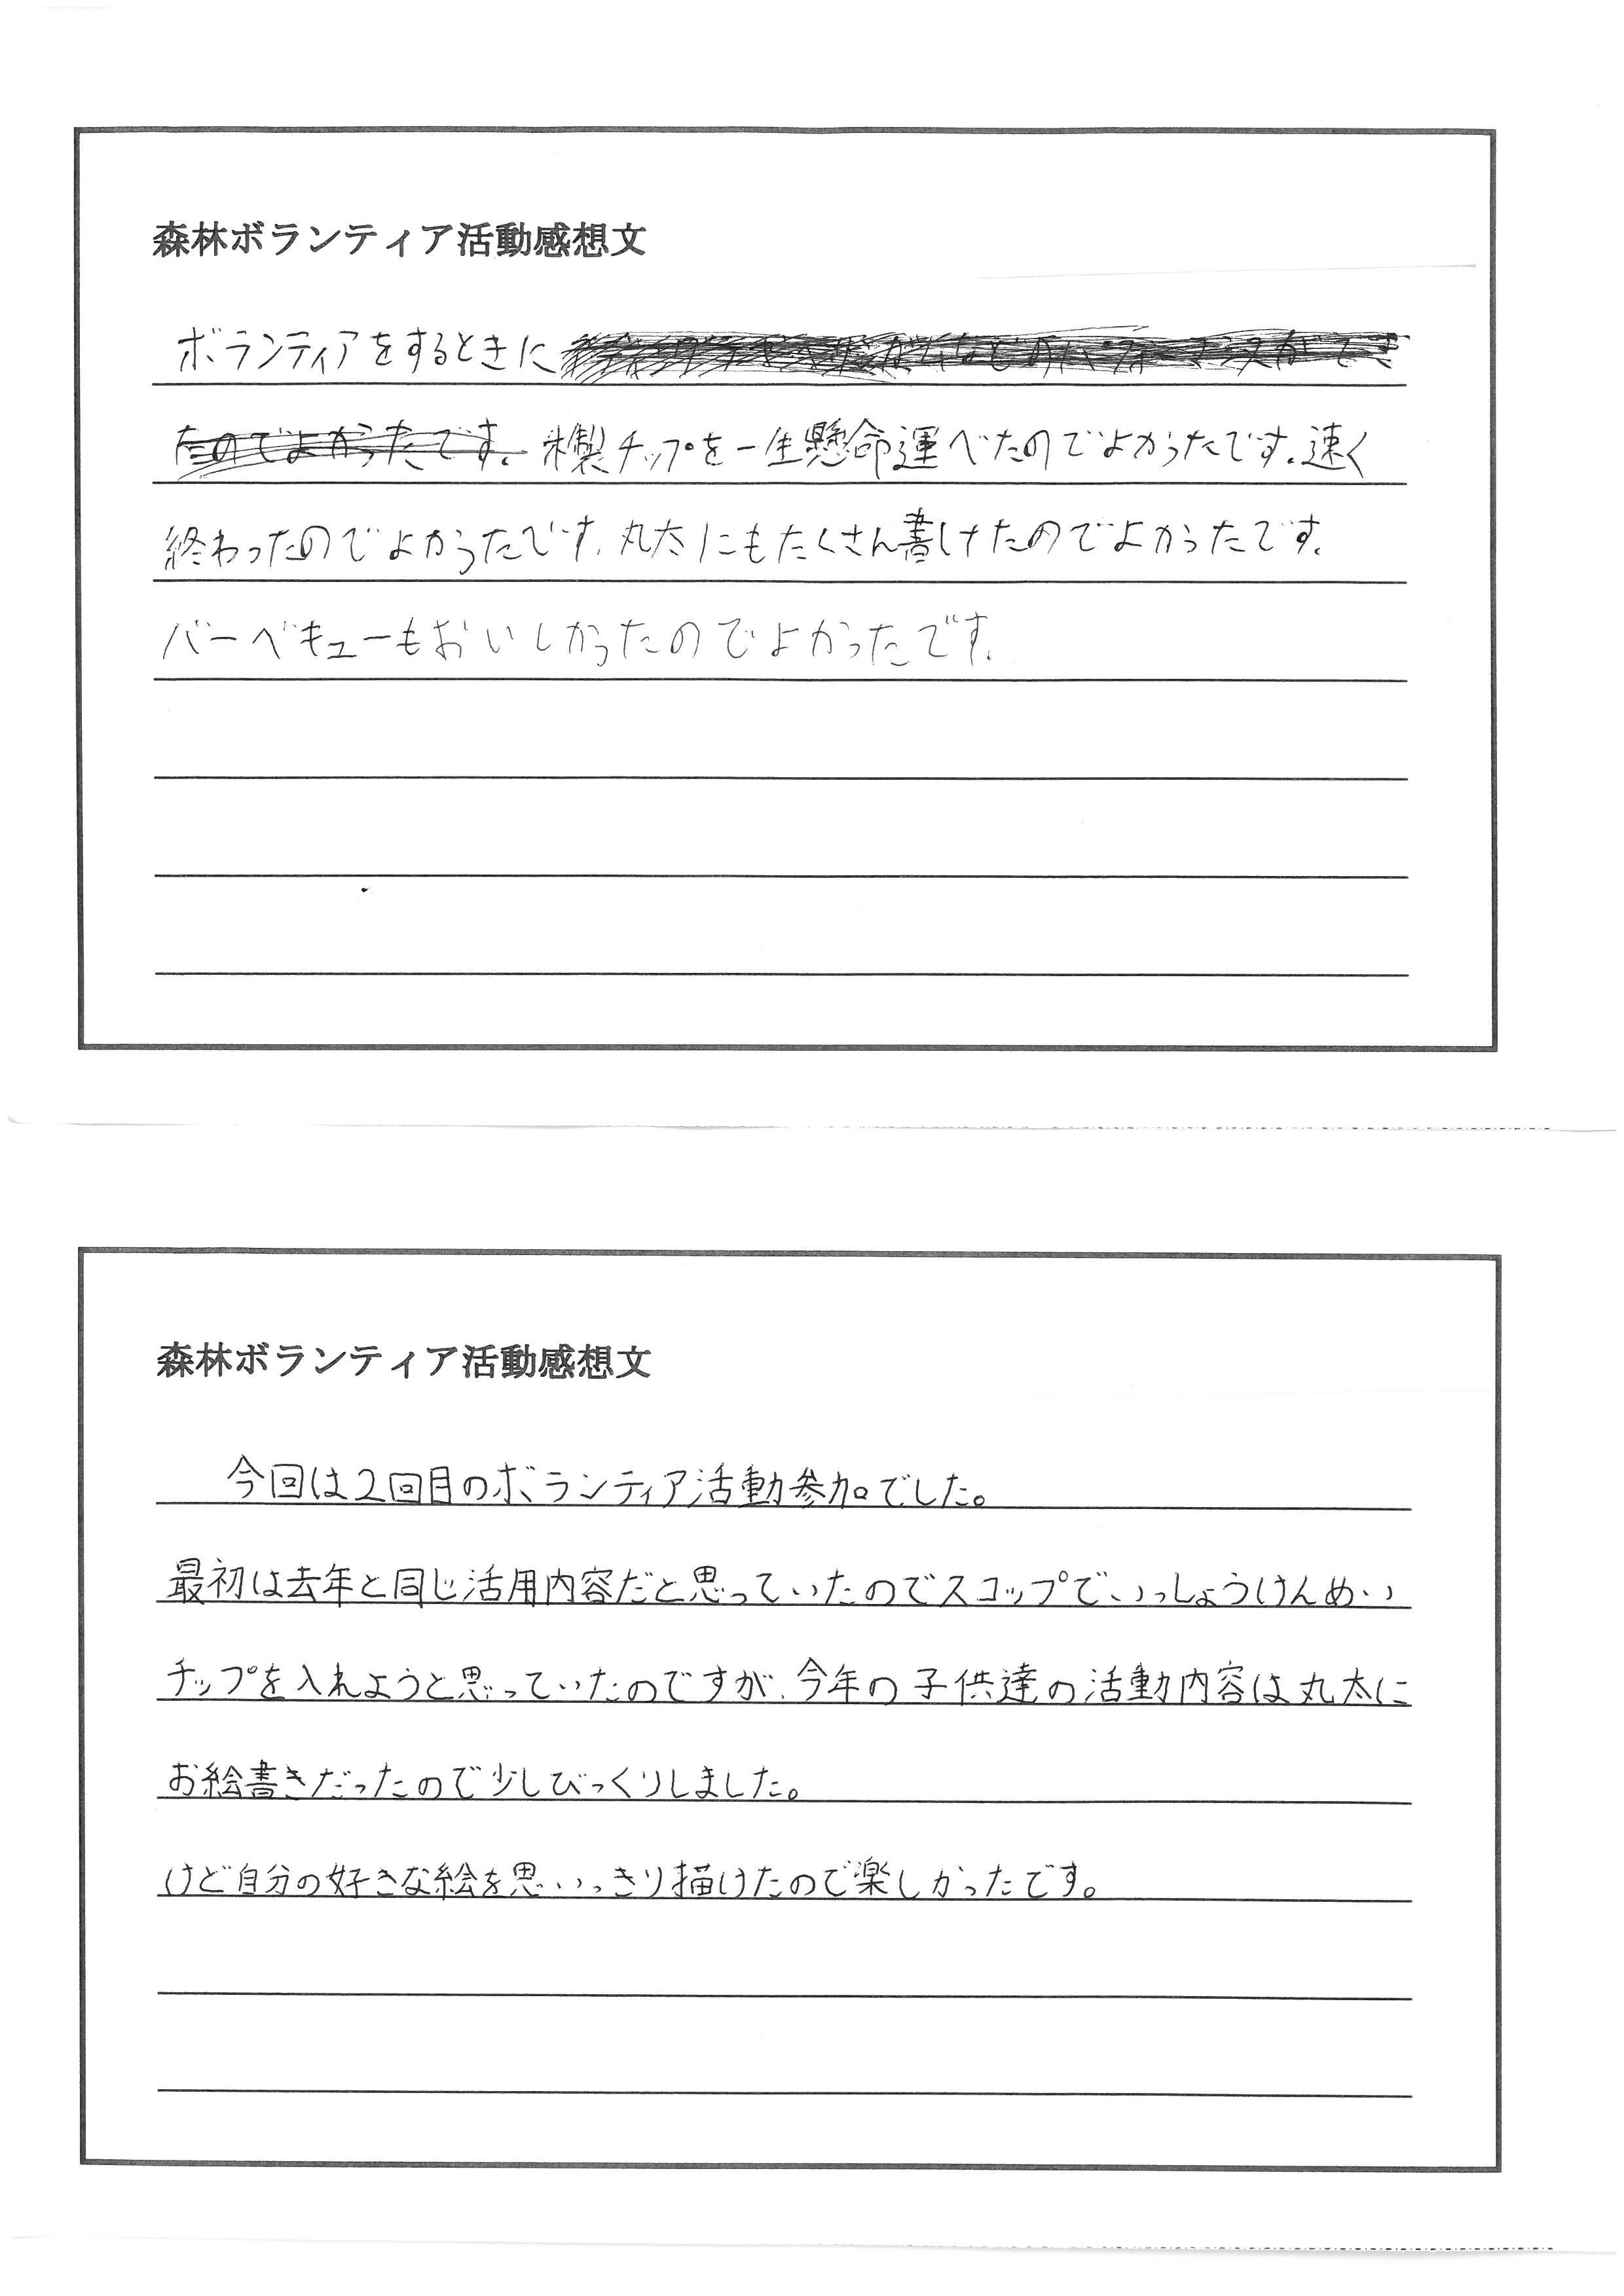 森林ボランティア活動感想文
ボランティアをするときに
たのでよかったです. 木製チップを一生懸命運べたのでよかったです. 速く
終わったのでよかったです. 丸太にもたくさん書けたのでよかったです.
バーベキューもおいしかったのでよかったです.
森林ボランティア活動感想文
今回は2回目のボランティア活動参加でした。
最初は去年と同じ活用内容だと思っていたのでスコップでいっしょうけんめい
チップを入れようと思っていたのですが、今年の子供達の活動内容は丸太に
お絵書きだったので少しびっくりしました。
けど自分の好きな絵を思いっきり描けたので楽しかったです。